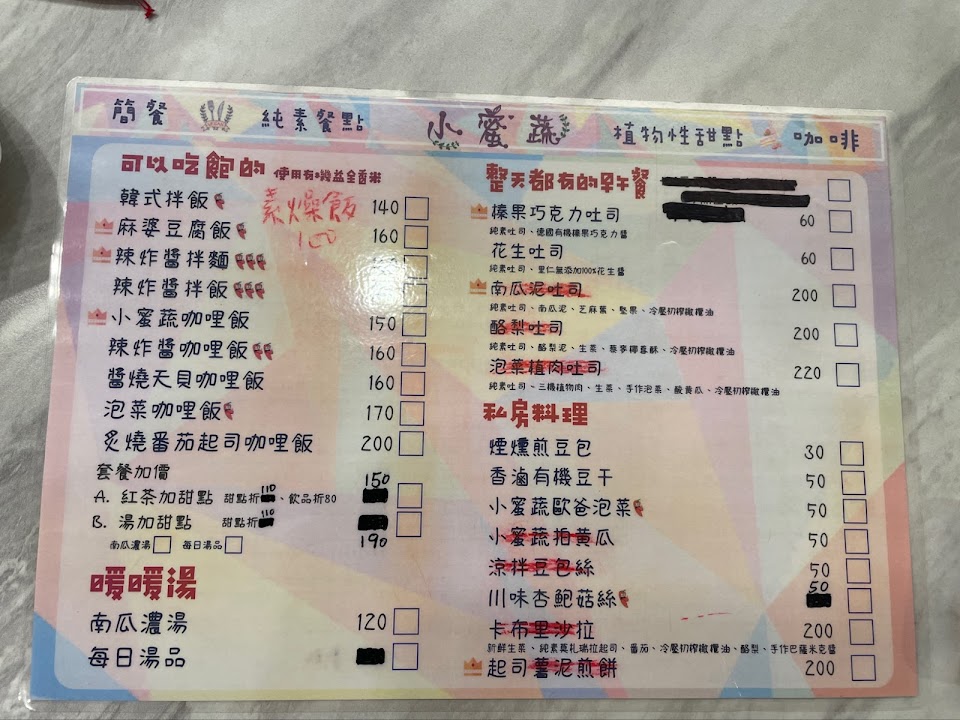 簡餐 純素餐點 小蜜蔬 植物性甜點 咖啡
可以吃飽的 使用有機益全香米
韓式拌飯 140
素燥飯
100
麻婆豆腐飯 160
辣炸醬拌麵
辣炸醬拌飯
小蜜蔬咖哩飯 150
辣炸醬咖哩飯 160
醬燒天貝咖哩飯 160
泡菜咖哩飯 170
炙燒番茄起司咖哩飯 200
套餐加價 150
A. 紅茶加甜點 甜點折110、飲品折80
B. 湯加甜點 甜點折110 190
南瓜濃湯 每日湯品
暖暖湯
南瓜濃湯 120
每日湯品
整天都有的早午餐
榛果巧克力吐司 60
純素吐司、德國有機榛果巧克力醬
花生吐司 60
純素吐司、里仁無添加100%花生醬
南瓜泥吐司 200
純素吐司、南瓜泥、芝麻葉、堅果、冷壓初榨橄欖油
酪梨吐司 200
純素吐司、酪梨泥、生菜、蕎麥椰香酥、冷壓初榨橄欖油
泡菜植肉吐司 220
純素吐司、三機植物肉、生菜、手作泡菜、酸黃瓜、冷壓初榨橄欖油
私房料理
煙燻煎豆包 30
香滷有機豆干 50
小蜜蔬歐爸泡菜 50
小蜜蔬拍黃瓜 50
涼拌豆包絲 50
川味杏鮑菇絲 50
卡布里沙拉 200
新鮮生菜、純素莫札瑞拉起司、番茄、冷壓初榨橄欖油、酪梨、手作巴薩米克醬
起司薯泥煎餅 200